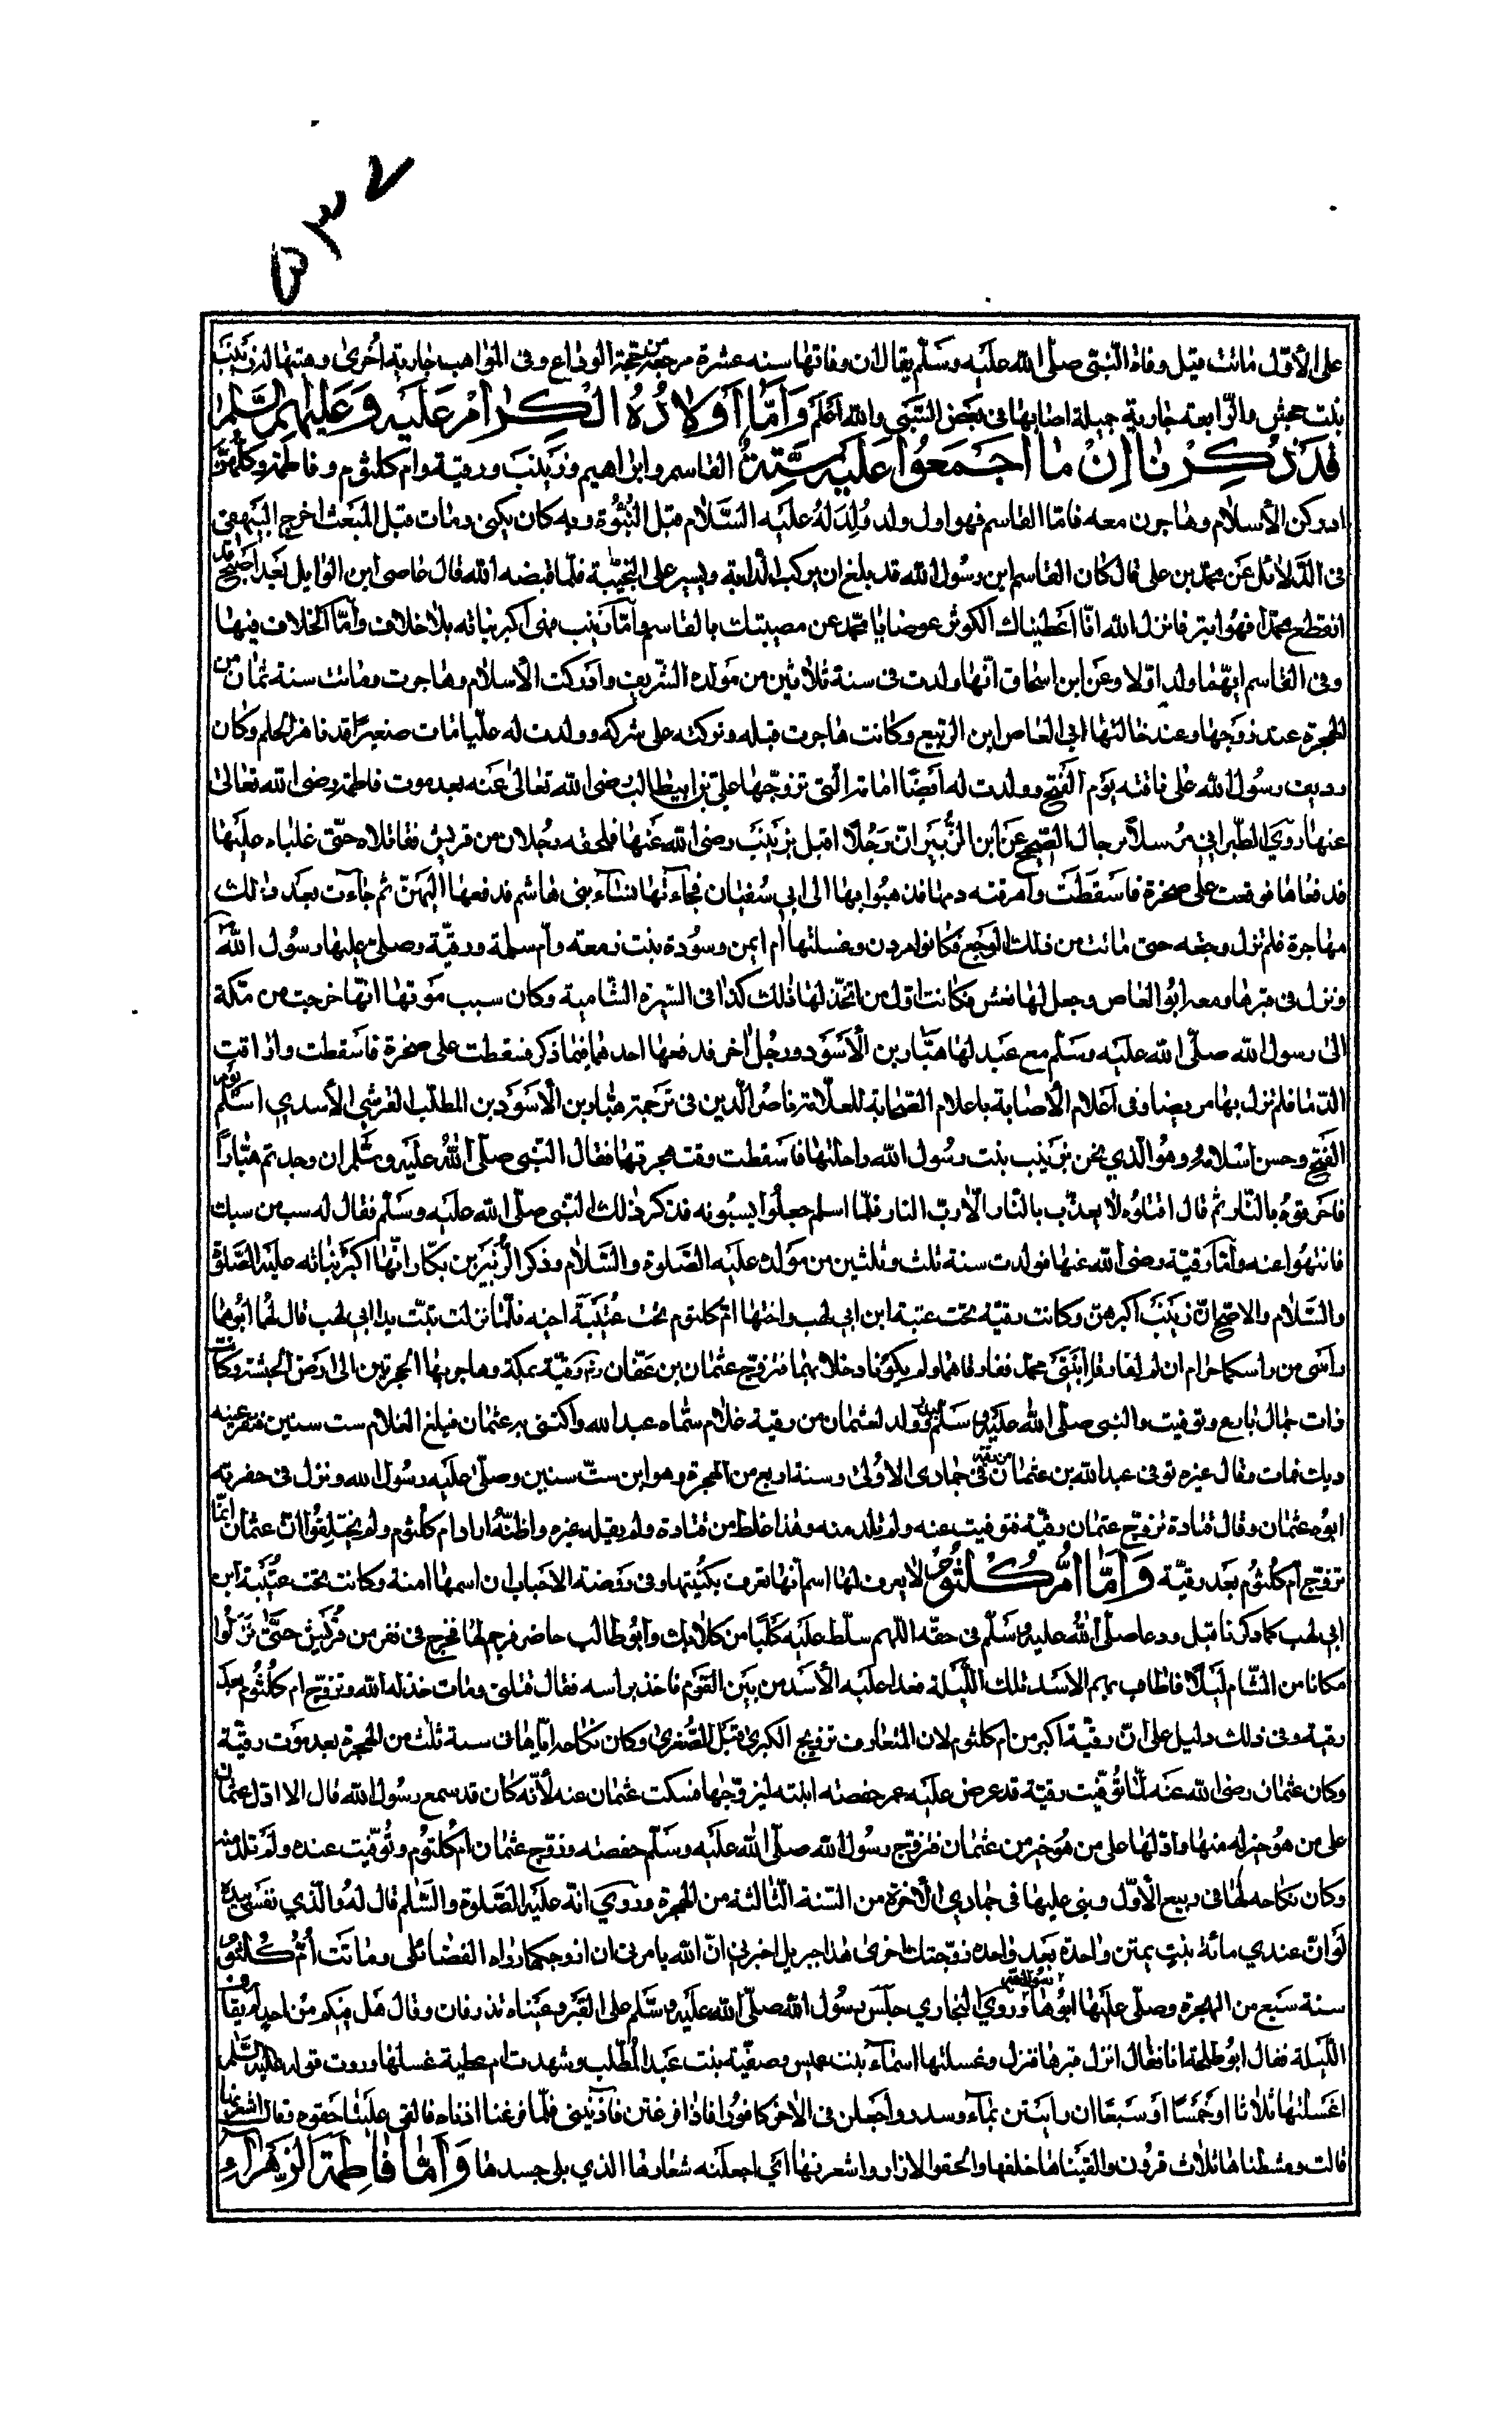 ٥٣٧
على الأول ماتت قبل وفاة النبي صلى الله عليه وسلم يقال ان وفاتها سنه عشرة مرجعه من حجة الوداع وفي المواهب جارية أخرى وهبتها له زينب
بنت جحش والرابعه جارية جميلة اصابها في بعض السبي والله اعلم وَأمّا أَولادُهُ الكرام عليه وعليهم السلام
قد ذكرنا ان ما اجمعوا عليه ستة القاسم وابراهيم وزينب ورقية وام كلثوم وفاطمة وكلهن
ادركن الأسلام وهاجرن معه فامّا القاسم فهو اول ولد وُلِدَ لهُ عليه السّلام قبل النبُوّة وبه كان يكنى ومات قبل المبعث اخرج البيهقي
في الدلائل عن محمد بن علي قال كان القاسم ابن رسُول الله قد بلغ ان يركب الدابة ويسير على النجيبة فلمّا قبضه الله قال عاصي ابن الوايل بعد اصبح قد
انقطع محمدًا فهو ابتر فانزل الله انّا اعطيناك الكوثر عوضا يا محمد عن مصيبتك بالقاسم وأمّا زينب فهي اكبر بناته بلا خلاف وأمّا الخلاف فيها
وفي القاسم ايهما ولد اوّلا وعن ابن اسحاق انّها ولدت في سنة ثلاثين من مولده الشريف وادركت الأسلام وهاجرت وماتت سنة ثمان من
الهجرة عند زوجها وعند خالتها ابي العاص ابن الربيع وكانت هاجرت قبله وتركته على شركه وولدت له عليّا مات صغيرًا قد ناهز الحلم وكان
رديف رسُول الله على ناقته يوم الفتح وولدت له أيضًا امامة التي تزوّجها علي بن ابيطالب رضى الله تعالى عنه بعد موت فاطمة رضى الله تعالى
عنها روَي الطبراني مُرسلاً برجال الصّحيح عن ابن الزّبير انّ رجُلًا اقبل بزينب رضى الله عنها فلحقه رجُلان من قريش فقاتلاه حتّى غلباه عليها
فدفعاها فوقعت على صخرة فاسقطت واهرقته دمها فذهبُوا بها الى ابي سُفيان فجآءتها نسآء بني هاشم فدفعها اليهنّ ثم جاءت بعد ذلك
مهاجرة فلم تزل وجعه حتى ماتت من ذلك الوجع فكانوا يرون وغسلتها أم ايمن وسُودة بنت زمعه وأم سلمة ورقيّة وصلى عليها رسُول الله
ونزل في قبرها ومعه ابُو العاص وجعل لها نعش فكانت اوّل من اتخذ لها ذلك كذا في السّيرة الشّامية وكان سبب موتها انّها خرجت من مكة
الى رسول الله صلّى الله عليه وسلم مع عبد لها هبّار بن الأسود ورجُل اخر فدفعها احدهما فيما ذكر فسقطت على صخرة فاسقطت واراقت
الدّما فلم تزل بها مريضا وفي اعلام الأصابة باعلام الصّحابة للعلّامة ناصر الدّين في ترجمة هبّار بن الأسود بن المطلب القرشي الأسدي اسلم يوم
الفتح وحسن اسْلامه وهُو الّذي نخس بزينب بنت رسُول الله راحلتها فاسقطت وقت هجرتها فقال النبي صلّى اللهُ عليه وسلّم ان وجدتم هبّاراً
فاحرقوهُ بالنّار ثم قال اقتلوُه لا يعذّب بالنّار الّا ربّ النار فلمّا اسلم جعلُوا يسبُونه فذكر ذلك النبي صلّى الله عليه وسلّم فقال له سب من سبك
فانتهُوا عنه وأمّا رقيّة رضى الله عنها فولدت سنة ثلث وثلثين من مولده عليه الصّلوة والسّلام وذكر الزّبير بن بكّار انّها اكبر بناته عليه الصّلوة
والسّلام والاصحّ انّ زينبَ اكبرهن وكانت رقيّة تحت عتبة ابن ابي لهب واختها امّ كلثوم تحت عُتيبَة اخيه فلمّا نزلت تبّت يدا ابي لهب قال لهُما ابُوهما
رأسى من راسكما حرام ان لم تفارقا ابنتي محمّد ففارقاهما ولم يكونا دخلا بهما فتزوّج عثمان بن عفّان رقيّة بمكة وهاجر بها الهجرتين الى ارض الحبشة وكانت
ذات جمال بارع وتوفيت والنبي صلّى الله عليه وسلّم ببدر وولد لعثمان من رقية غلام سمّاه عبد الله واكتنى به عثمان فبلغ الغلام ست سنين فنقر عينه
ديك فمات وقال غيره توفى عبد الله بن عثمان من رقية في جمادى الاوُلى وسنة اربع من الهجرة وهو ابن ستّ سنين وصلّى عليه رسُول الله ونزل في حفرته
ابوُه عثمان وقال قتادة تزوّج عثمان رقيّة فتوفيت عنه ولم تلد منه وهذا غلط من قتادة ولم يقله غيره واظنّهُ اراد ام كلثوم ولم يختلفُوا انّ عثمان انما
تزوّج أم كلثوم بعد رقيّة وَأَمّا امُّ كُلْثُوْم لا يعرف لها اسم انّها تعرف بكنيتها وفي روضة الاحباب ان اسمها امنة وكانت تحت عتيبة ابن
ابي لهب كما ذكرنا قبل ودعا صلّى اللهُ عليه وسلّم في حقّه اللّهم سلّط عليه كلبًا من كلابك وابُو طالب حاضر فرجم لها فخرج في نفر من قُريش حتّى نزلوا
مكانا من الشّام ليلًا فاطاف بهم الاسد تلك اللّيلة فعدا عليه الأسد من بين القوم فاخذ براسه فقال قتلني ومات خذله الله وتزوّج ام كلثوُم بعد
رقية وفي ذلك دليل على انّ رقيّة اكبر من ام كلثوم لان المتعارف تزويج الكبرى قبل الصّغرى وكان نكاحه اياها في سنة ثلث من الهجرة بعد موت رقيّة
وكان عثمان رضى الله عنه لمّا توُفّيت رقيّة قد عرض عليه عمر حفصته ابنته ليزوّجها فسكت عثمان عنه لأنّه كان قد سمع رسُول الله قال الا ادل عثمان
على من هُو خير له منها وادلّها على من هُو خير من عثمان فتزوّج رسُول الله صلّى الله عليه وسلّم حفصته وزوّج عثمان ام كُلثوم وتُوفّيت عنده ولم تلد منه
وكان نكاحه لها في ربيع الأوّل وبنى عليها في جمادي الأخرة من السّنة الثالثة من الهجرة وروي انّه عليه الصّلوة والسّلام قال لهُ والّذي نفسى بيده
لوَ انّ عندي مائة بنتٍ يمتن واحدة بعد واحدة زوّجتك اخرى هذا جبريل اخبرني انّ الله يامرنى ان ازوجكها رواه الفضائلى وماتت أُمّ كلثوم
سنة سبع من الهجرة وصلّى عليها ابُوها رسُول الله وروَي البخاري جلس رسُول الله صلّى الله عليه وسلّم على القبر وعيناه تذرفان وقال هل منكم من احد لم يقارف
اللّيلة فقال ابُو طلحة انا فقال انزل قبرها فنزل وغسلتها اسمآء بنت عميس وصفيّة بنت عبد المطّلب وشهدت ام عطية غسلها وروت قوله عليه السّلم
اغسلنها ثلاثا او خمسًا او سبعًا ان رايتن بمآء وسدر واجعلن في الأخر كافورًا فاذا فرغتن فآذنّيني فلمّا فرغنا اذناه فالقى علينا حقوه وقال اشعرنها
قالت ومشطناها ثلاث قرون والقيناها خلفها والحقو الازار واشعرنها اي اجعلنه شعارها الذي يلى جسدها وَأَمّا فَاطِمَة الزهرآء